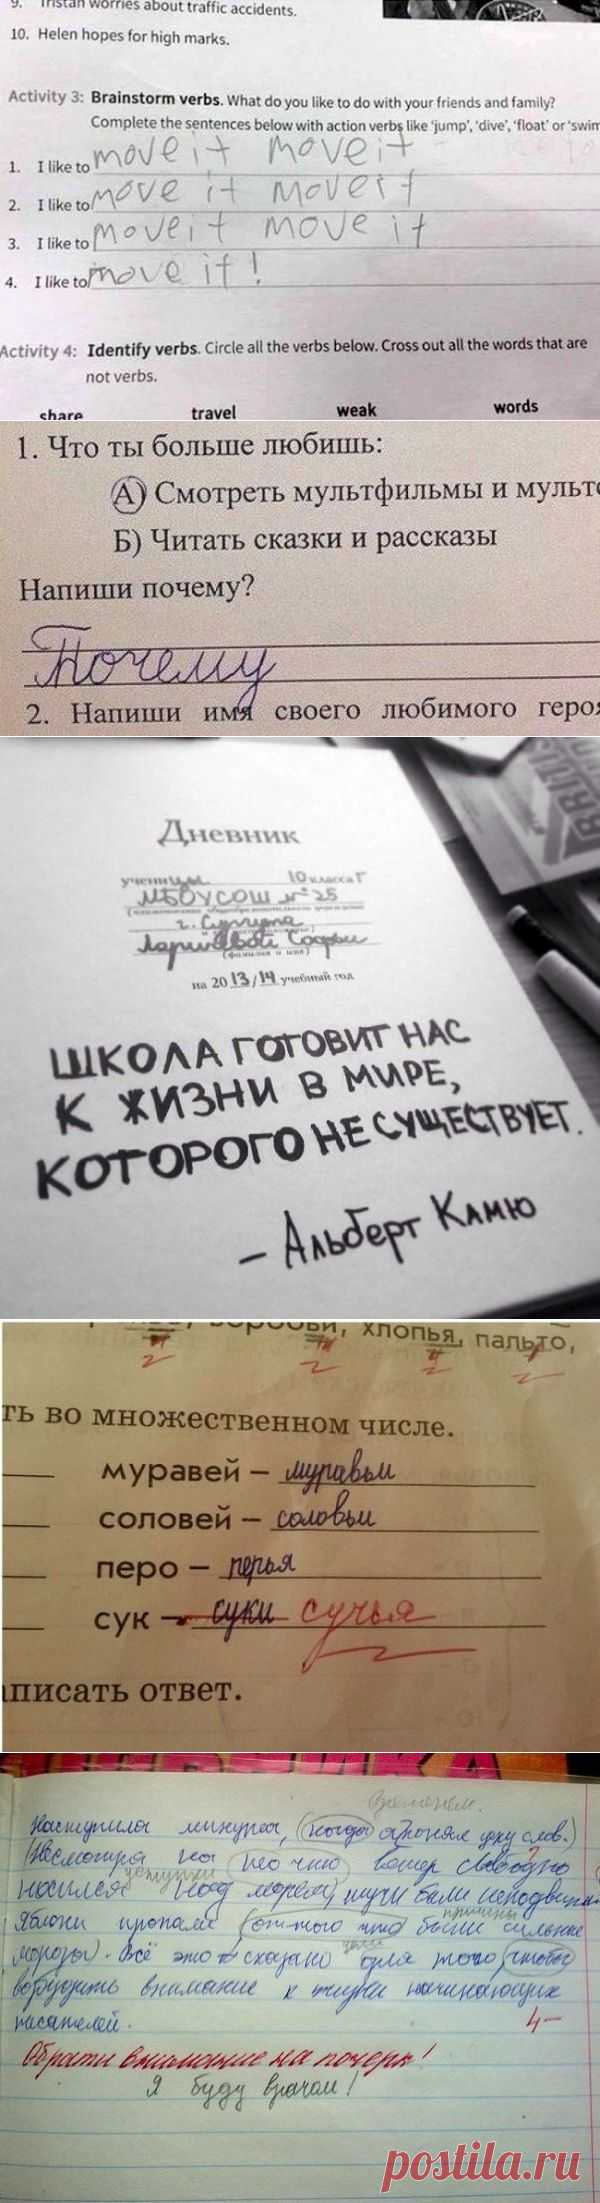 9. Tristan worries about traffic accidents.
10. Helen hopes for high marks.
Activity 3: Brainstorm verbs. What do you like to do with your friends and family?
Complete the sentences below with action verbs like 'jump', 'dive', 'float' or 'swim
1. I like to move it move it
2. I like to move it move it
3. I like to move it move it
4. I like to move it!
Activity 4: Identify verbs. Circle all the verbs below. Cross out all the words that are
not verbs.
share travel weak words
1. Что ты больше любишь:
А) Смотреть мультфильмы и мульт
Б) Читать сказки и рассказы
Напиши почему?
Почему
2. Напиши имя своего любимого геро
Дневник
ученицы 10 класса Г
МБОУСОШ №25
г. Сургута
Софьи
(фамилия и имя)
на 2013/14 учебный год
ШКОЛА ГОТОВИТ НАС
К ЖИЗНИ В МИРЕ,
КОТОРОГО НЕ СУЩЕСТВУЕТ.
– АЛЬБЕРТ КАМЮ
хлопья, пальто,
ть во множественном числе.
муравей – муравьи
соловей – соловьи
перо – перья
сук – суки сучья
писать ответ.
временем.
Наступила минута, (когда я понял цену слов.)
(Несмотря на то что ветер свободно
уступки
носился над морем) тучи были неподвижн
причины
Яблони пропали (оттого что были сильные
цели
морозы). Всё это сказано для того (чтобы
возбудить внимание к жизни начинающих
писателей.
4–
Обрати внимание на почерк!
Я буду врачом!
BRITIS
postila.ru